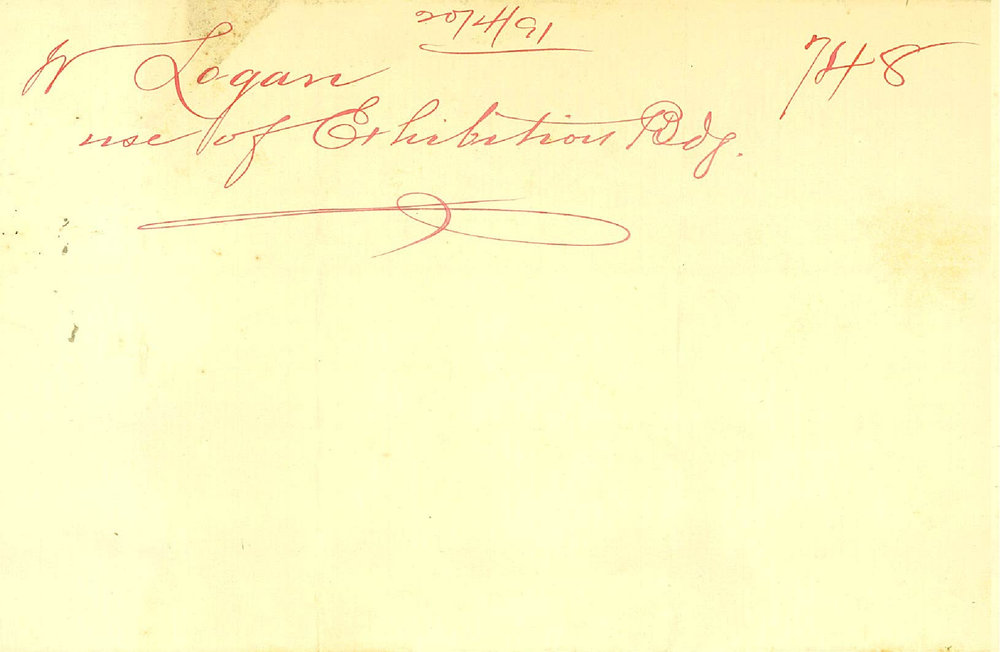 20/4/91
W Logan 748
use of Exhibition Bdg.